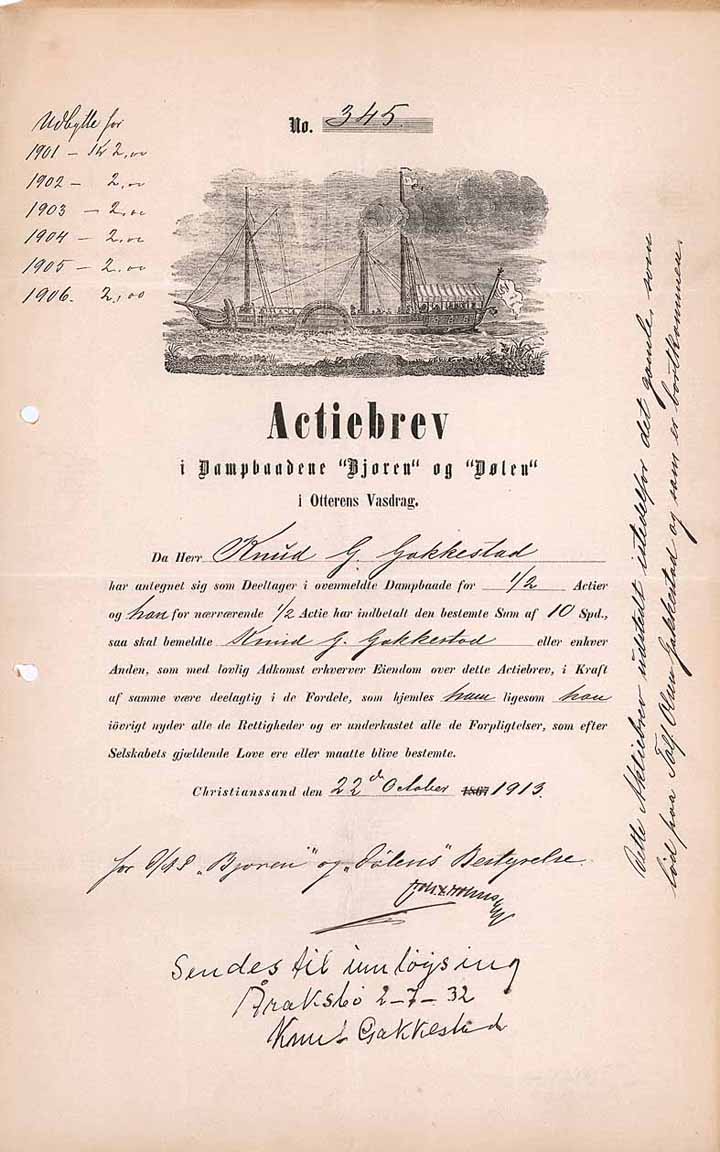 Udbytte for
1901 – 1/2 2,00
1902 – 2,00
1903 – 2,00
1904 – 2,00
1905 – 2.00
1906. 2,00
No. 345.
Actiebrev
i Dampbaadene "Bjoren" og "Dølen"
i Otterens Vasdrag.
Da Herr Knud G. Gakkestad
har antegnet sig som Deeltager i ovenmeldte Dampbaade for 1/2 Actier
og han for nærværende 1/2 Actie har indbetalt den bestemte Sum af 10 Spd.,
saa skal bemeldte Knud G. Gakkestad eller enhver
Anden, som med lovlig Adkomst erhverver Eiendom over dette Actiebrev, i Kraft
af samme være deelagtig i de Fordele, som hjemles ham ligesom han
iövrigt nyder alle de Rettigheder og er underkastet alle de Forpligtelser, som efter
Selskabets gjældende Love ere eller maatte blive bestemte.
Christianssand den 22de October 1867 1913.
for D/S "Bjoren" og "Dølens" Bestyrelse.
Sendes til innløysing
Åraksbö 2-7-32
Knut Gakkestad
Dette Aktiebrev udstedt istedetfor det gamle, som
lød paa Olsen Gakkestad og som er bortkommen.